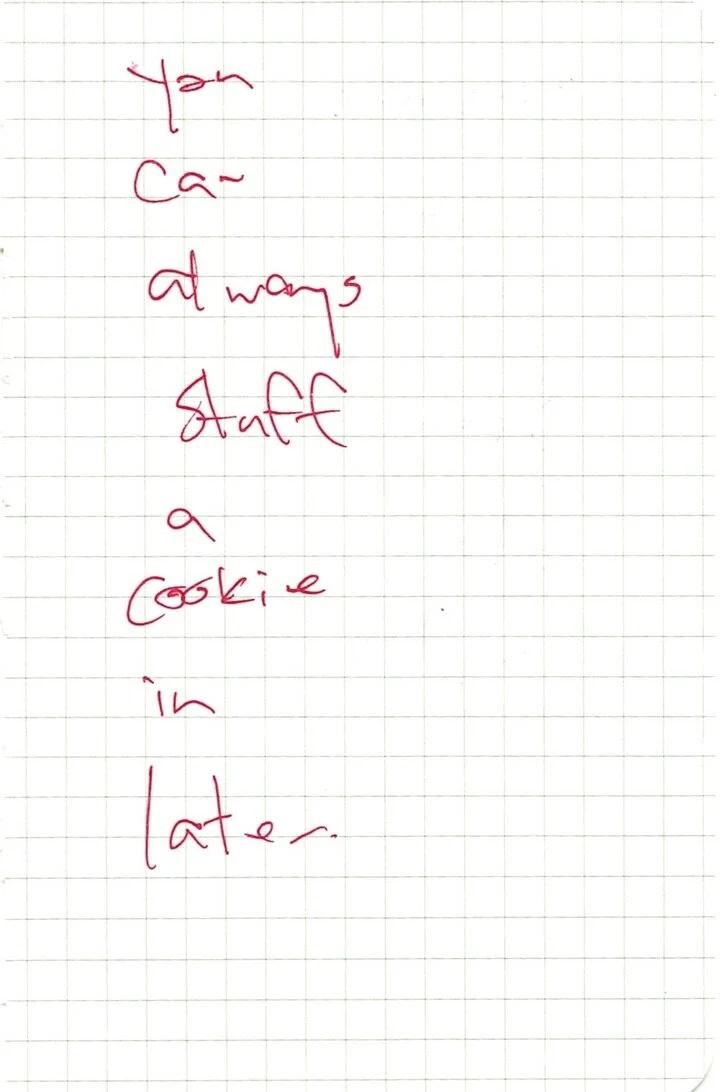 you
can
always
stuff
a
cookie
in
later.